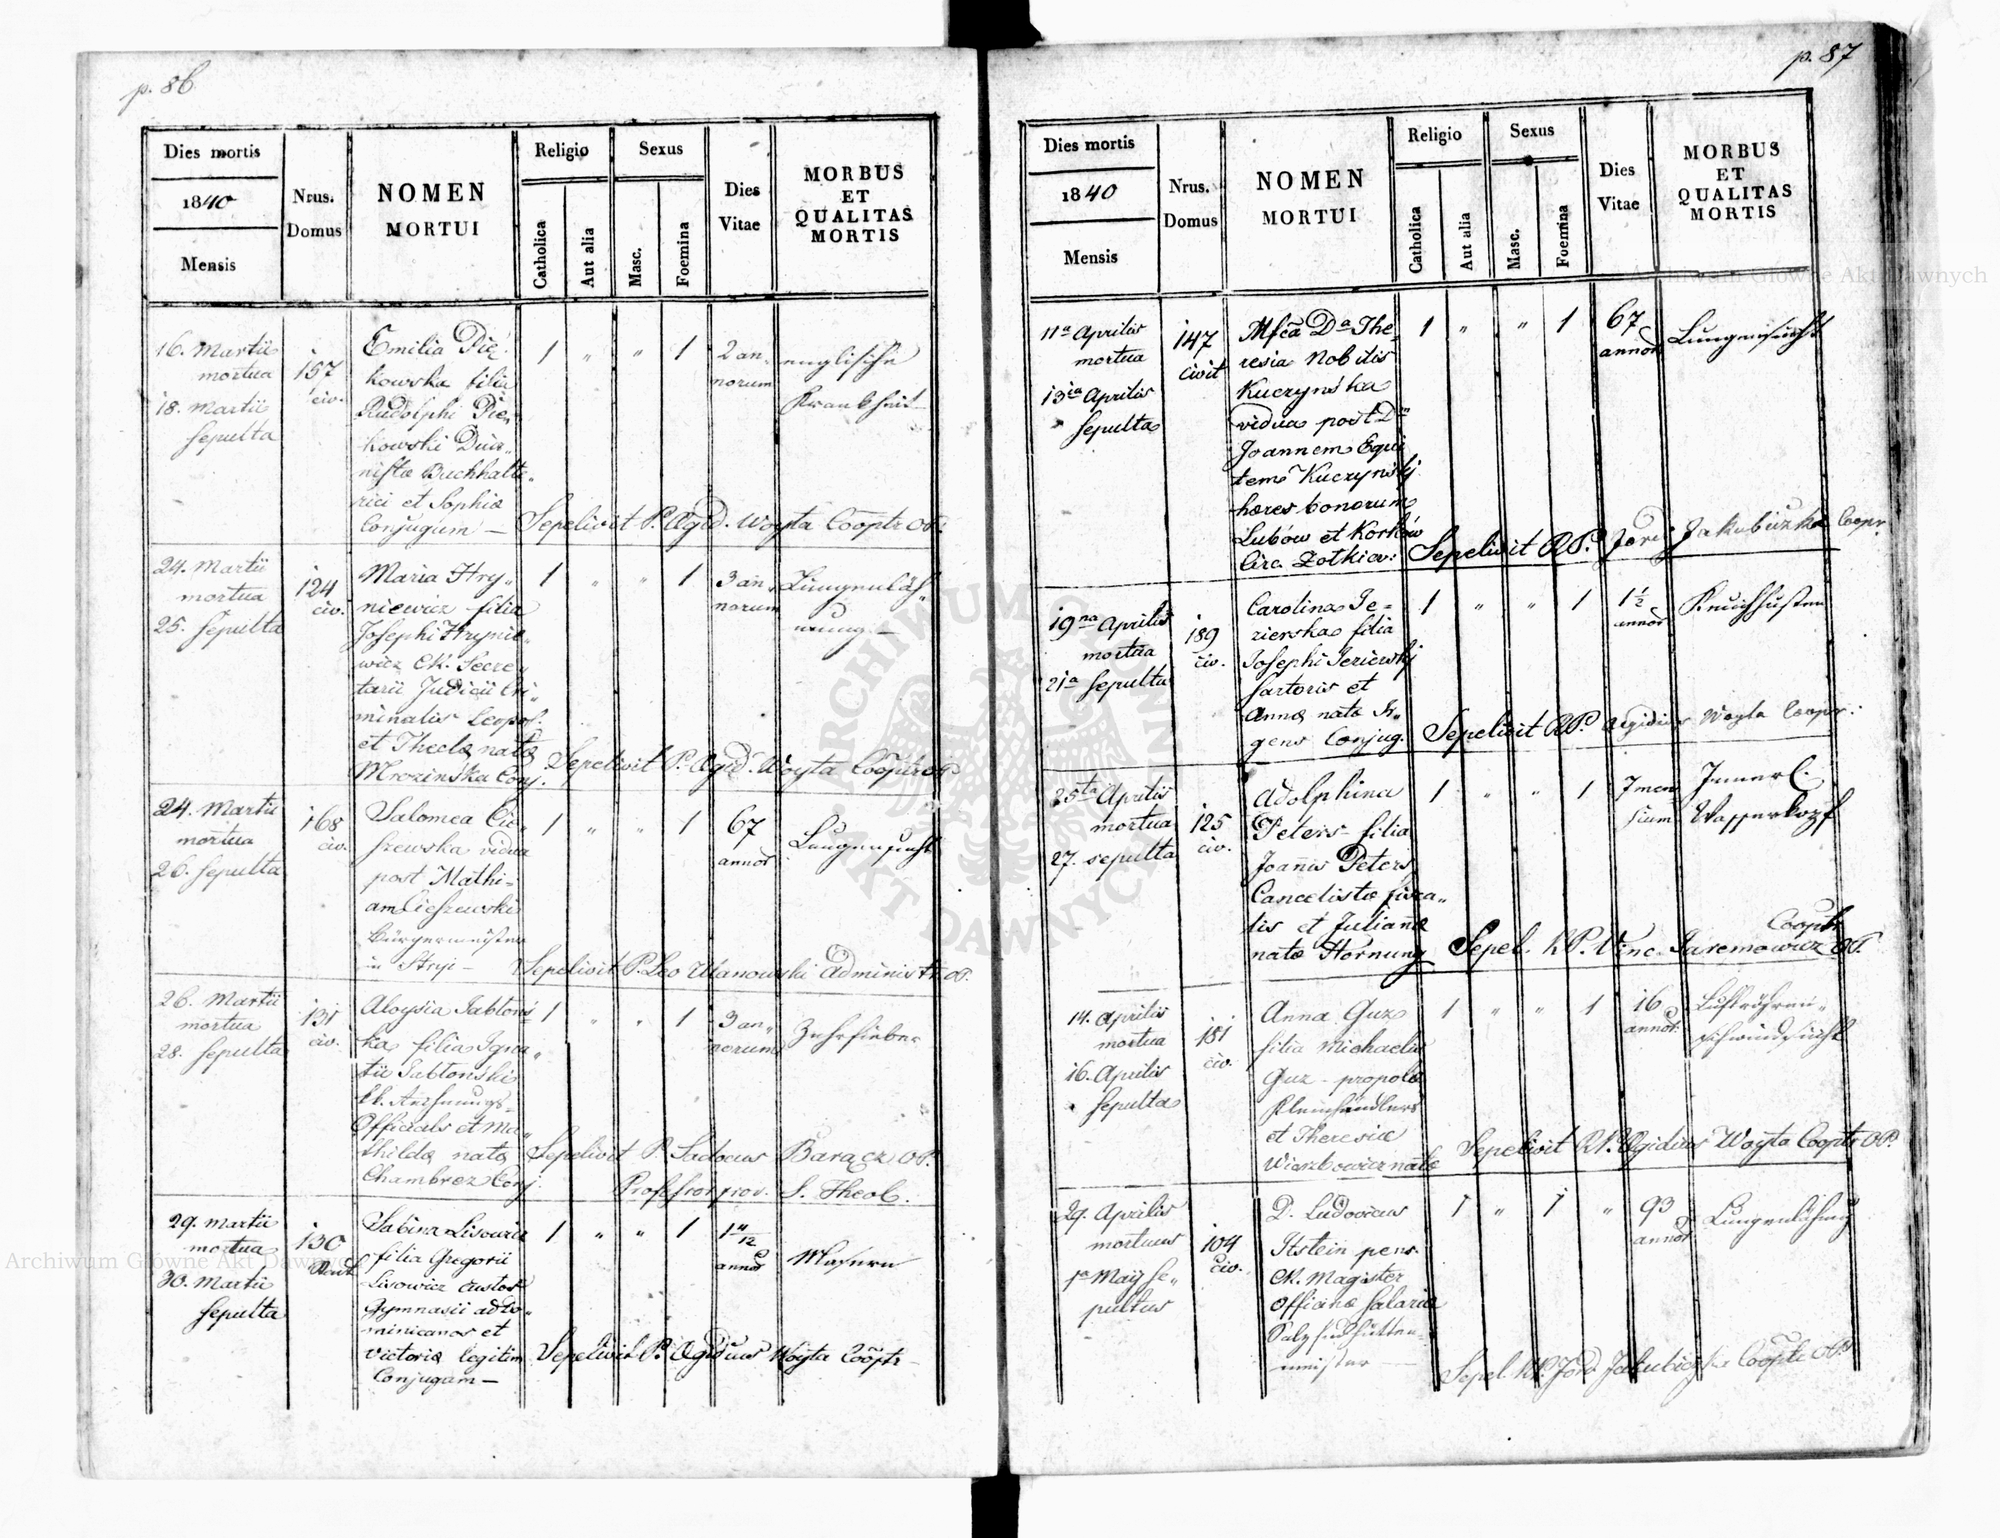 p. 86
Dies mortis
1840
Mensis
Nrus.
Domus
NOMEN
MORTUI
Religio
Catholica
Aut alia
Sexus
Masc.
Foemina
Dies
Vitae
MORBUS
ET
QUALITAS
MORTIS
16. Martii
mortua
18. Martii
sepulta
157
civ.
Emilia Pień
kowska filia
Rudolphi Pień
kowski
Buchhalte
rici et Sophiæ
Conjugum —
1 " " 1
2 an
norum
englische
Krankheit
Sepelivit P. Ægid. Woyta Cooptr OP.
24. Martii
mortua
25. Sepulta
124
civ.
Maria Hry„
niewicz filia
Josephi Hrynie„
wicz CR. Secre„
tarii Judicii Cri„
minalis Leopol.
et Theclæ natæ
Mrozinska Conj.
1 " " 1
3 an
norum
Lungenläh„
mung. —
Sepelivit P. Ægid. Woyta Cooptr OP
24. Martii
mortua
26. Sepulta
168
civ.
Salomea Cie
szewska vidua
post Mathi=
am Cieszewski
Bürgermeister
in Stryi —
1 " " 1
67
annor
Lungensucht
Sepelivit P. Leo Ulanowski Administr. OP.
26. Martii
mortua
28. Sepulta
131
civ.
Aloysia Jabłońs
ka filia Igna„
tii Jabłoński
kk. Rechnungs=
Officials et Ma„
thildæ natæ
Chambrez Conj.
1 " " 1
3 an„
norum
Zehrfieber
Sepelivit P. Sadocus Barącz OP.
Professor prov. S. Theol.
29. Martii
mortua
30. Martii
Sepulta
130
Sabina Lisowicz
filia Gregorii
Lisowicz custos
Gymnasii ad Do„
minicanos et
Victoriæ legitim
Conjugum —
1 " " 1
1 11/12
annor
Masern
Sepelivit P. Ægidius Woyta Cooptr
p. 87
Dies mortis
1840
Mensis
Nrus.
Domus
NOMEN
MORTUI
Religio
Catholica
Aut alia
Sexus
Masc.
Foemina
Dies
Vitae
MORBUS
ET
QUALITAS
MORTIS
11a Aprilis
mortua
13ia Aprilis
Sepulta
147
civit
Mfca Da The=
resia Nobilis
Kuczyńska
vidua post Dm
Joannem Equi
tem Kuczynskj
hæres bonorum
Lubów et Korków
Circ. Zołkiew:
1 " " 1
67
annor
Lungensucht
Sepelivit RP. Jord Jakubiczka Coopr.
19na Aprilis
mortua
21a Sepulta
189
civ.
Carolina Je=
zierska filia
Josephi Jezierskj
Sartoris et
Annæ natæ
gens Conjug.
1 " " 1
1 1/2
annor
Keuchhusten
Sepelivit RP. Ægidius Woyta Coopr:
25ta Aprilis
mortua
27. sepulta
125
civ.
Adolphina
Peters filia
Joañis Peters
Cancelistæ fisca„
lis et Juliañæ
natæ Hornung
1 " " 1
7 men
sium
Innerl.
Wasserkopf
Cooptr
Sepel. RP. Vinc. Jaremowicz OP.
14. Aprilis
mortua
16. Aprilis
Sepulta
181
civ.
Anna Guz
filia Michaelis
Guz - propolæ
Kleinhändlers
et Theresiæ
Wierzbowicz natæ
1 " " 1
16
annor.
Luftröhren„
schwindsucht
Sepelivit RP. Ægidius Woyta Cooptr OP.
29. Aprilis
mortuus
1a Maÿ se„
pultus
104
civ.
D. Ludovicus
Itstein pens
CR. Magister
Officinæ Salariæ
Salzsudhütten=
meister —
1 " 1 "
93
annor
Lungenlähmung
Sepel. RP. Jord Jakubiczka Cooptr OP
Archiwum Główne Akt Dawnych
Archiwum Główne Akt Dawnych
ARCHIWUM GŁÓWNE AKT DAWNYCH